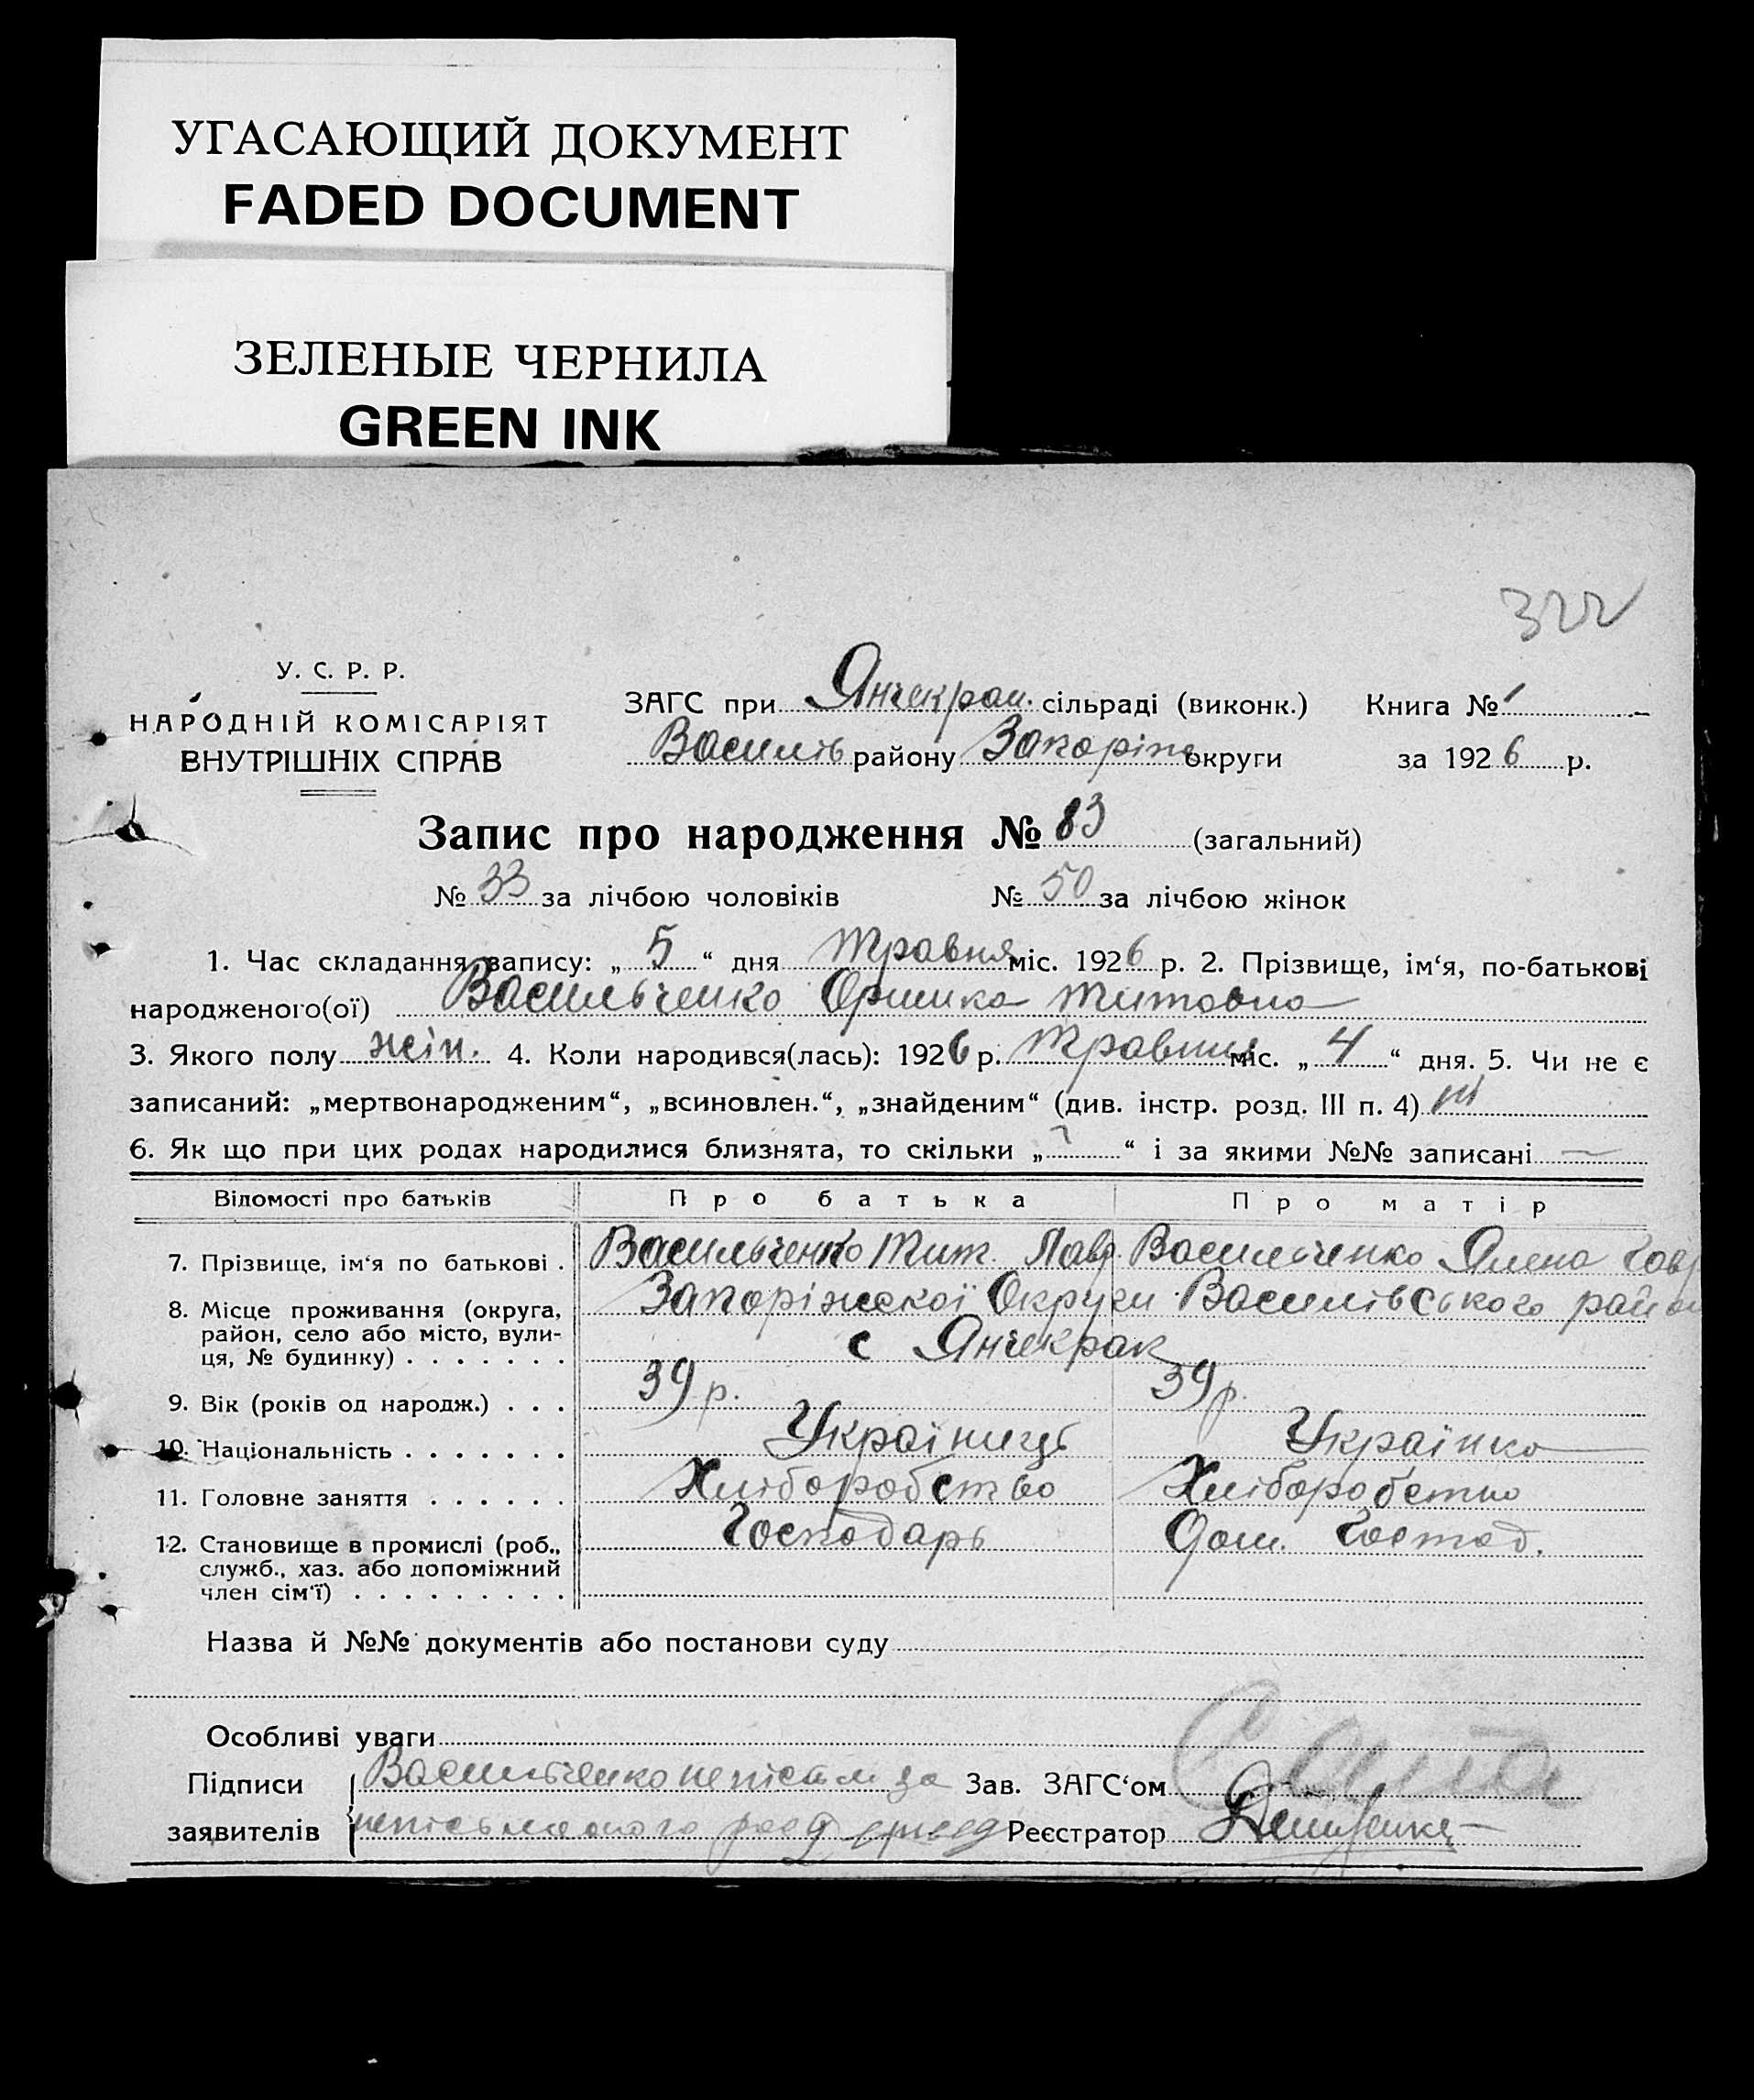 УГАСАЮЩИЙ ДОКУМЕНТ
FADED DOCUMENT
ЗЕЛЕНЫЕ ЧЕРНИЛА
GREEN INK
322
У. С. Р. Р.
НАРОДНІЙ КОМІСАРІЯТ
ВНУТРІШНІХ СПРАВ
ЗАГС при Янчекрак. сільраді (виконк.) Книга № 1
Василів району Запоріж округи за 1926 р.
Запис про народження № 83 (загальний)
№ 33 за лічбою чоловіків № 50 за лічбою жінок
1. Час складання запису: „ 5 “ дня Травня міс. 1926 р. 2. Прізвище, ім‘я, по-батькові
народженого(ої) Васильченко Оришка Титовна
3. Якого полу жін. 4. Коли народився(лась): 1926 р. Травня міс. „ 4 “ дня. 5. Чи не є
записаний: „мертвонародженим“, „всиновлен.“, „знайденим“ (див. інстр. розд. III п. 4) ні
6. Як що при цих родах народилися близнята, то скільки „ “ і за якими №№ записані —
Відомості про батьків Про батька Про матір
7. Прізвище, ім‘я по батькові . Васильченко Тит. Лавр. Васильченко Ялена Гавр
8. Місце проживання (округа, Запоріжскої Округи Василівського район
район, село або місто, вули-
ця, № будинку) . . . . . . . с Янчекрак
9. Вік (років од народж.) . . . 39 р. 39 р.
10. Національність . . . . . . . Украіниць Українка
11. Головне заняття . . . . . . Хліборобство Хліборобство
12. Становище в промислі (роб., Господарь Дом. Господ.
служб., хаз. або допоміжний
член сім‘ї) . . . . . . . . .
Назва й №№ документів або постанови суду
Особливі уваги
Підписи Васильченко неписьм за Зав. ЗАГС‘ом
заявителів неписьменого Реєстратор